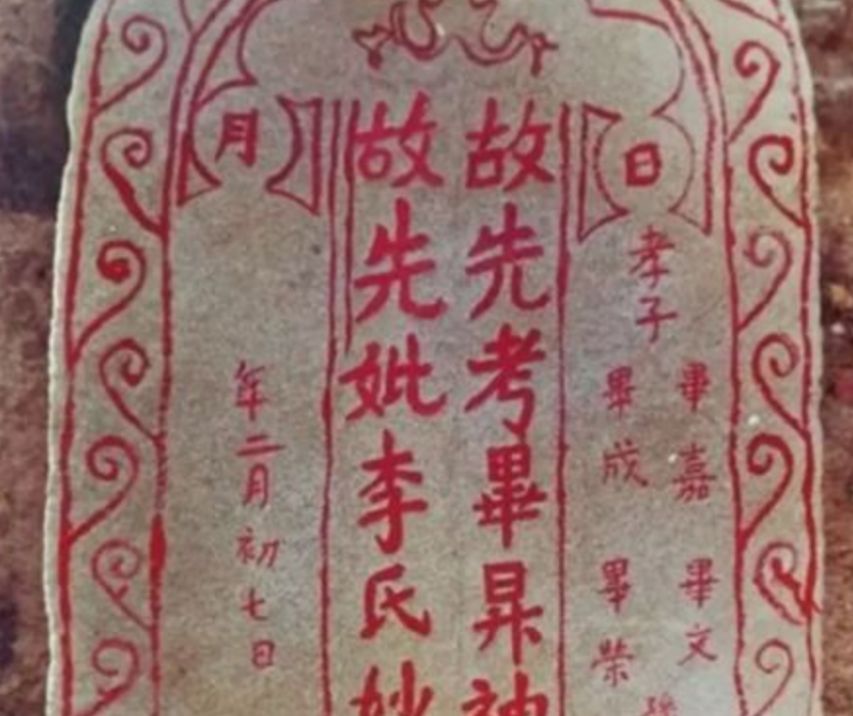 日
孝子
畢嘉 畢文
畢成 畢榮
故先考畢昇神
故先妣李氏妙
月
年二月初七日